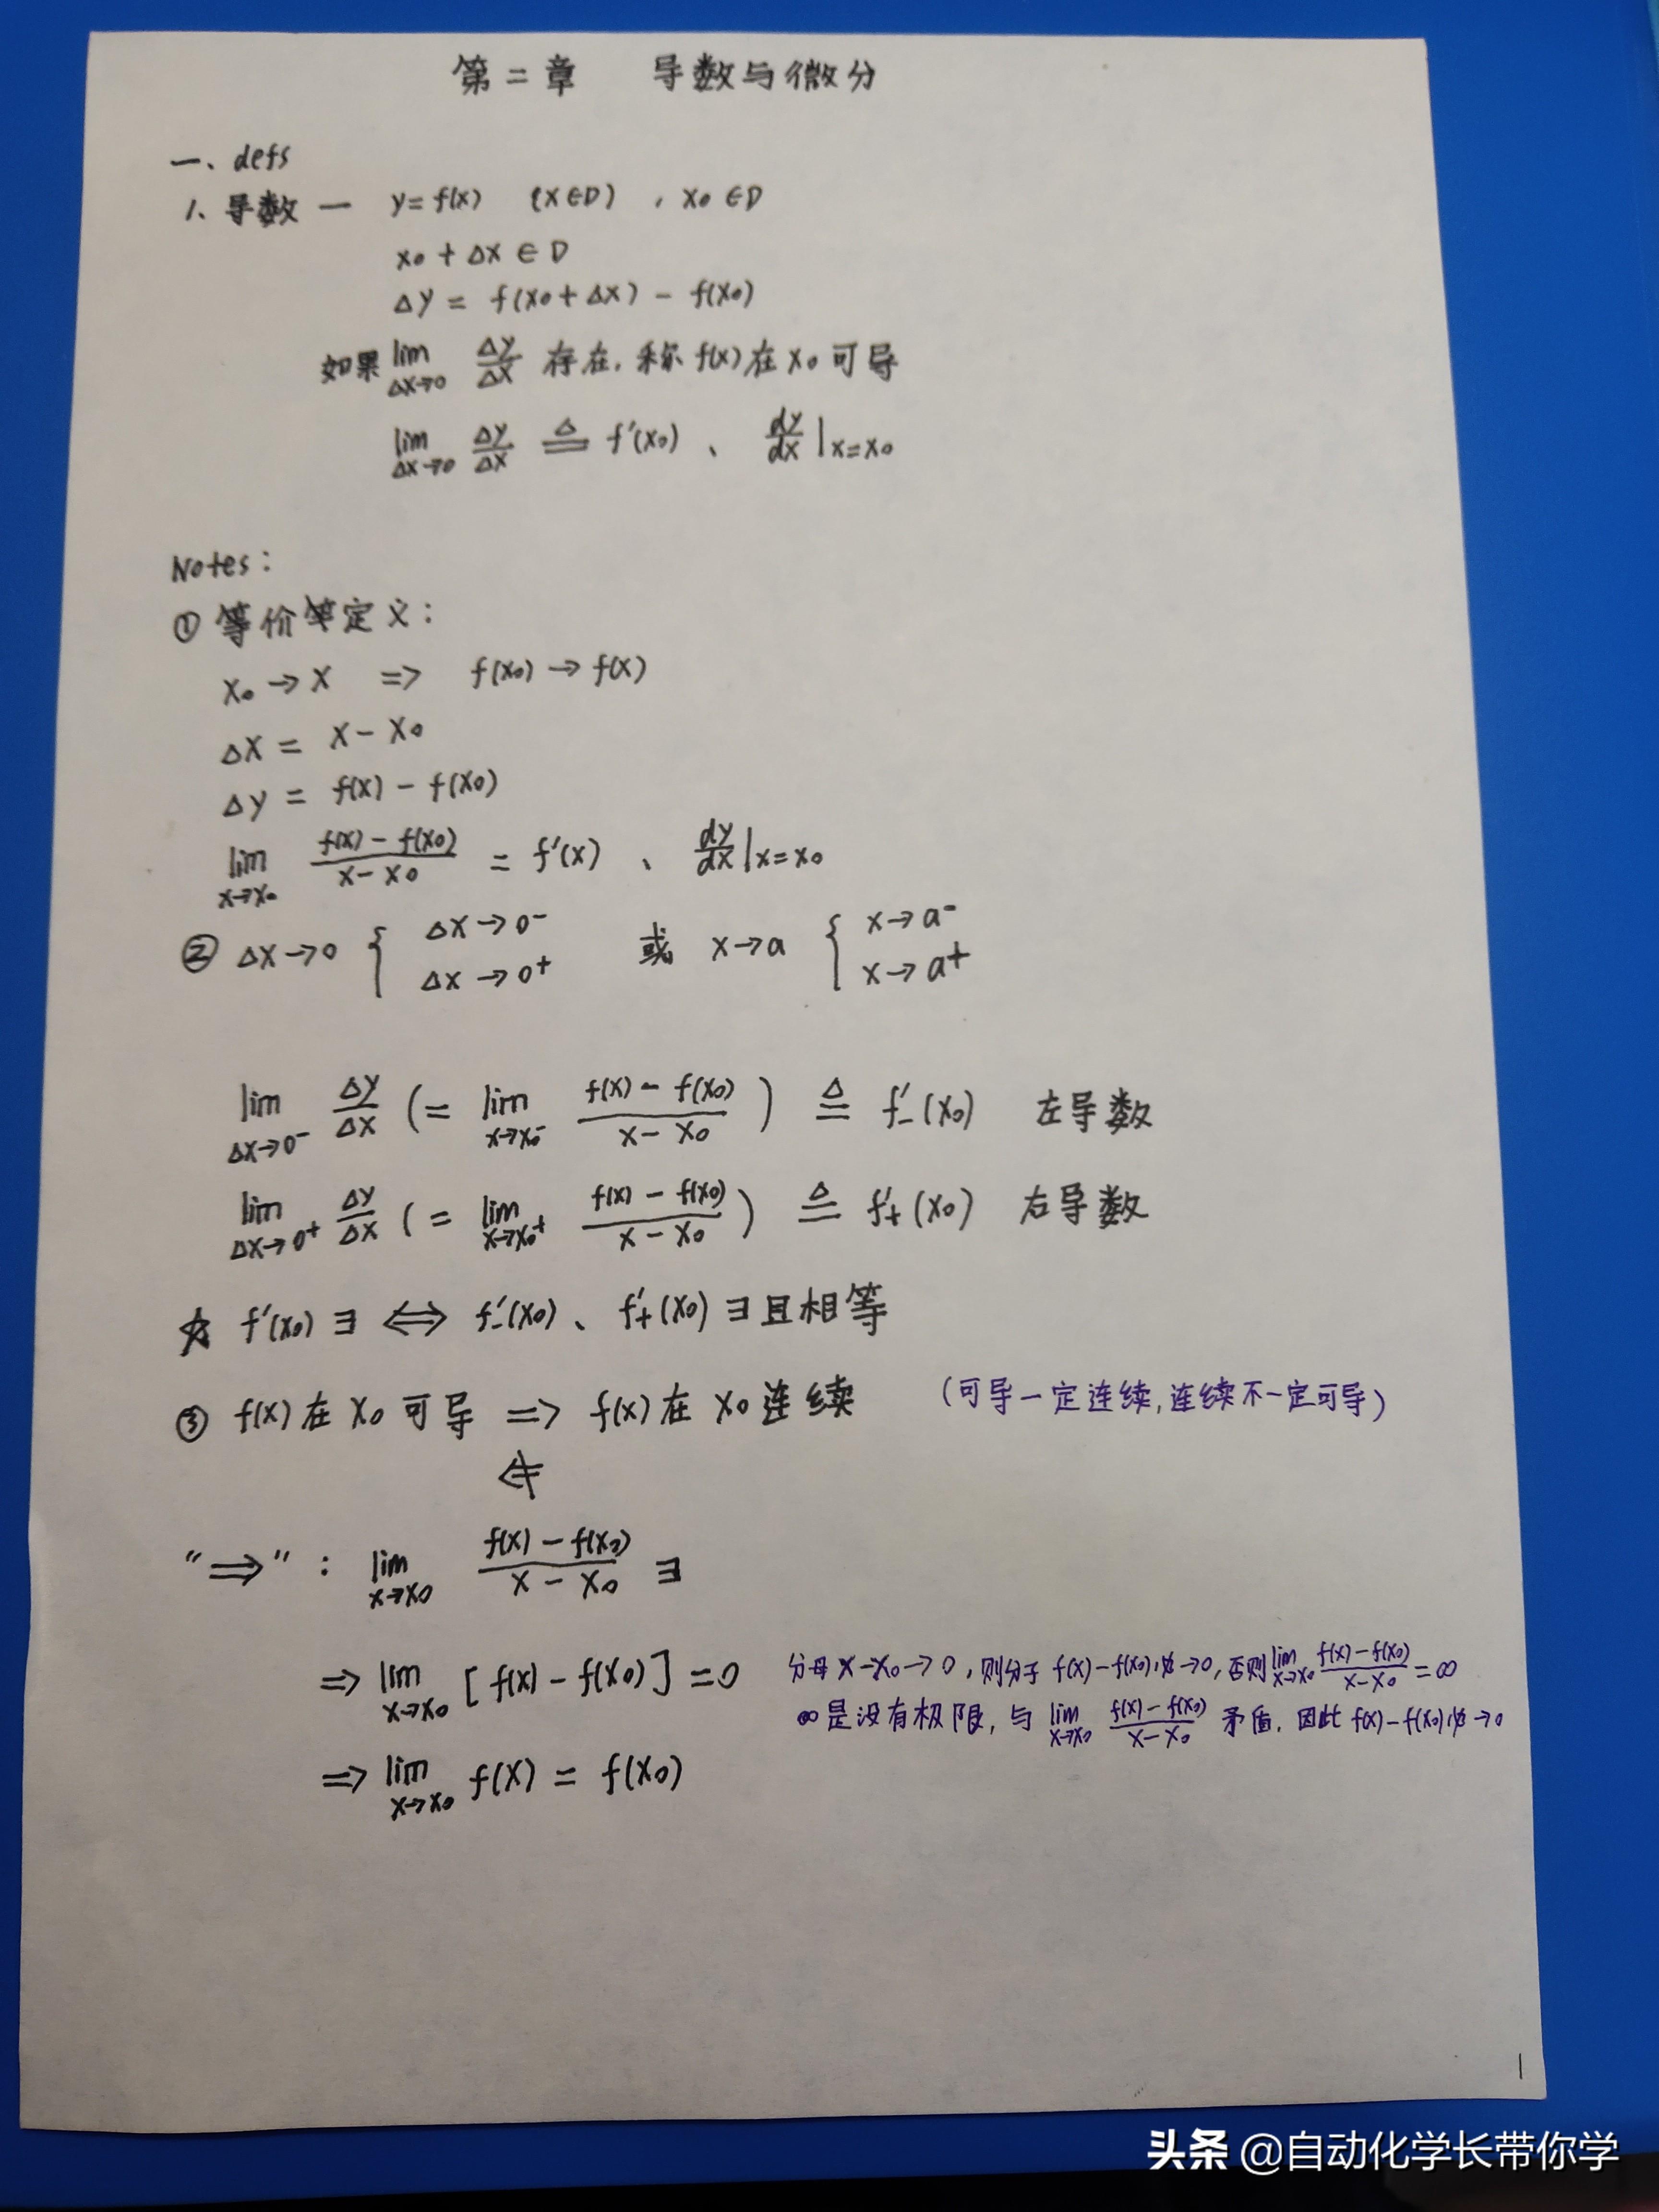 第二章 导数与微分
一、defs
1、导数 — y=f(x) (x∈D), x₀∈D
x₀+Δx∈D
Δy = f(x₀+Δx) - f(x₀)
如果 lim Δx→0 Δy/Δx 存在, 称 f(x) 在 x₀ 可导
lim Δx→0 Δy/Δx ≜ f'(x₀)、 dy/dx|x=x₀
Notes:
① 等价定义:
x₀→x => f(x₀)→f(x)
Δx = x-x₀
Δy = f(x)-f(x₀)
lim x→x₀ (f(x)-f(x₀))/(x-x₀) = f'(x)、 dy/dx|x=x₀
② Δx→0 { Δx→0⁻ Δx→0⁺ 或 x→a { x→a⁻ x→a⁺
lim Δx→0⁻ Δy/Δx (= lim x→x₀⁻ (f(x)-f(x₀))/(x-x₀)) ≜ f'₋(x₀) 左导数
lim Δx→0⁺ Δy/Δx (= lim x→x₀⁺ (f(x)-f(x₀))/(x-x₀)) ≜ f'₊(x₀) 右导数
☆ f'(x₀)∃ ⟺ f'₋(x₀)、f'₊(x₀)∃且相等
③ f(x)在x₀可导 => f(x)在x₀连续 (可导一定连续,连续不一定可导)
⇍
"⇒" : lim x→x₀ (f(x)-f(x₀))/(x-x₀) ∃
⇒ lim x→x₀ [f(x)-f(x₀)]=0 分母x-x₀→0,则分子f(x)-f(x₀)必→0,否则lim x→x₀ (f(x)-f(x₀))/(x-x₀)=∞
∞是没有极限,与 lim x→x₀ (f(x)-f(x₀))/(x-x₀) 矛盾. 因此f(x)-f(x₀)必→0
⇒ lim x→x₀ f(x) = f(x₀)
1
头条 @自动化学长带你学